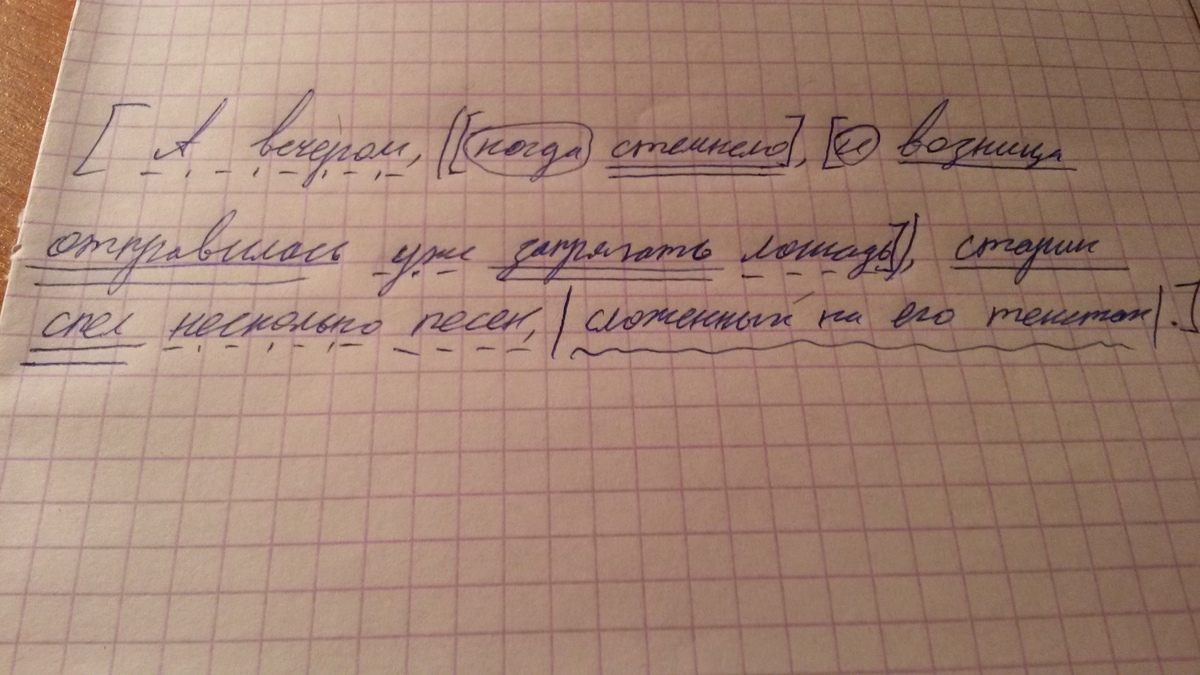 [ А вечером, ([когда стемнело], [и возница
отправилась уже запрягать лошадь]), старик
спел несколько песен, |сложенный на его текстах|.]